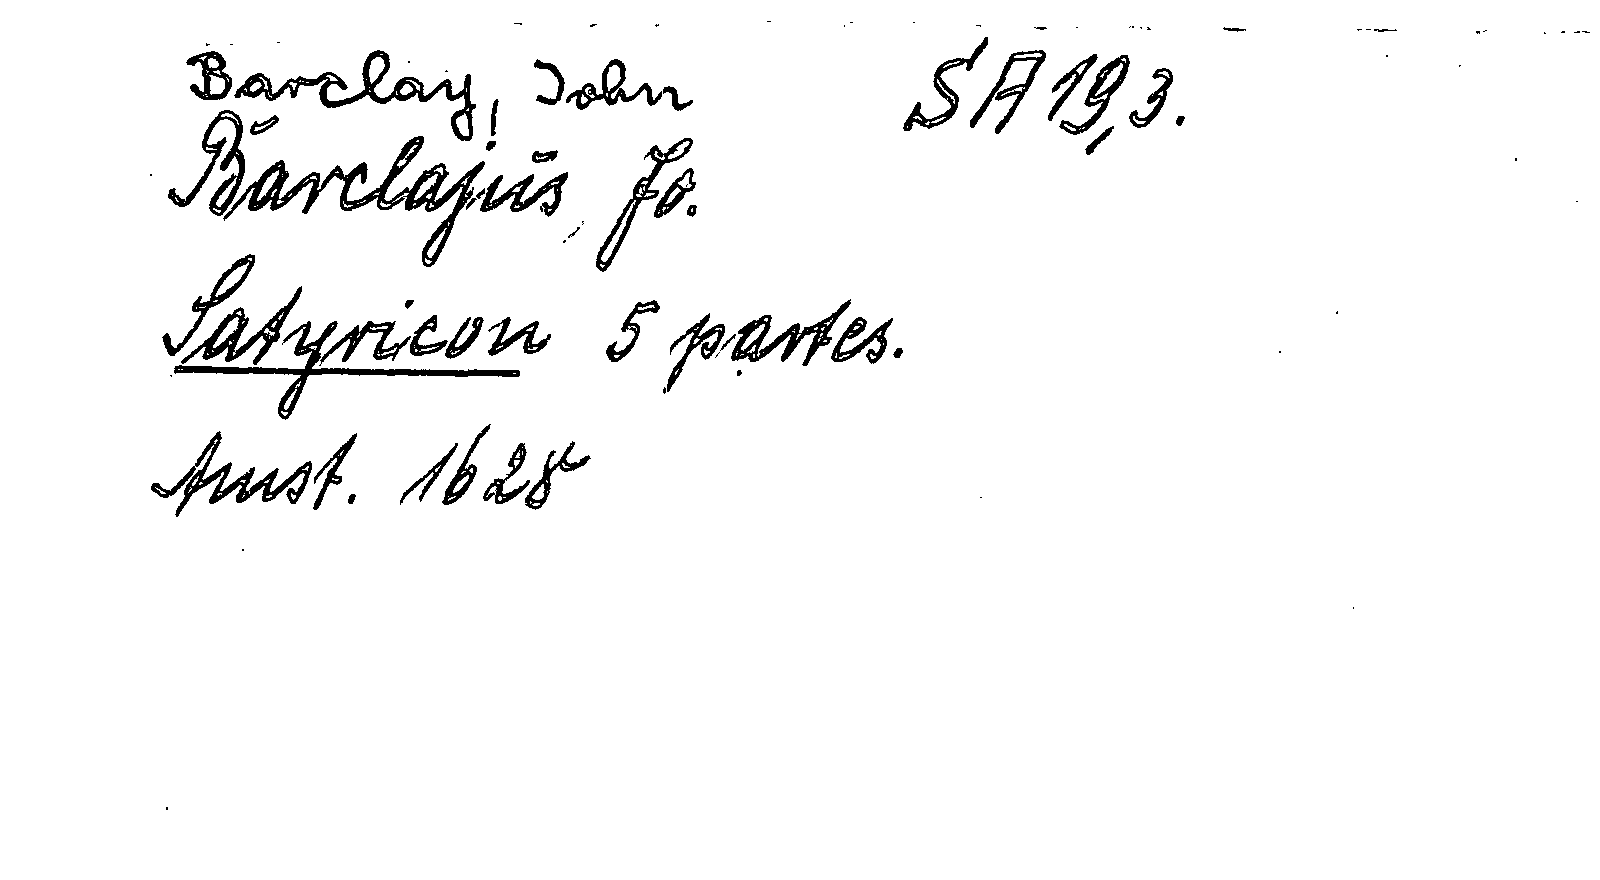 Barclay, John SA 19,3.
Barclajus, Jo.
Satyricon 5 partes.
Amst. 1628